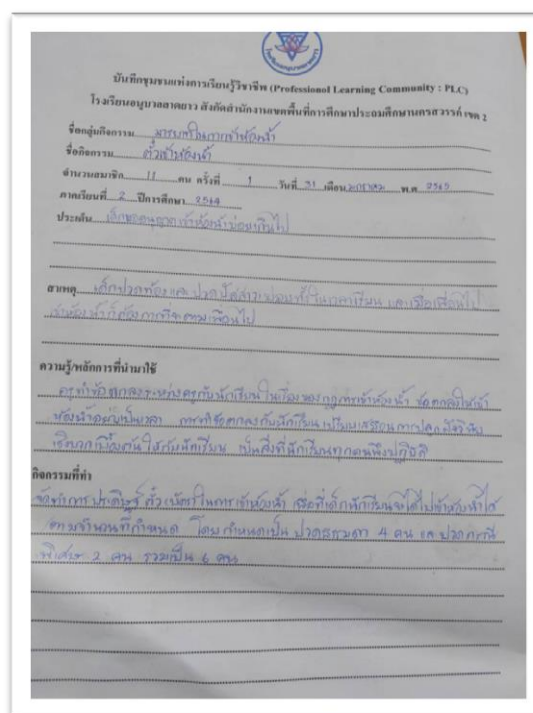 บันทึกชุมชนแห่งการเรียนรู้วิชาชีพ (Professional Learning Community : PLC)
โรงเรียนอนุบาลลาดยาว สังกัดสำนักงานเขตพื้นที่การศึกษาประถมศึกษานครสวรรค์ เขต 2
ชื่อกลุ่มกิจกรรม มารยาทในการเข้าห้องน้ำ
ชื่อกิจกรรม ตั๋วเข้าห้องน้ำ
จำนวนสมาชิก 11 คน ครั้งที่ 1 วันที่ 31 เดือน มกราคม พ.ศ. 2565
ภาคเรียนที่ 2 ปีการศึกษา 2564
ประเด็น เด็กขออนุญาตเข้าห้องน้ำบ่อยเกินไป
สาเหตุ เด็กปวดท้อง และปวดปัสสาวะบ่อยทั้งในเวลาเรียน และเมื่อเพื่อนไป
เข้าห้องน้ำก็ต้องการที่จะตามเพื่อนไป
ความรู้/หลักการที่นำมาใช้
ครูทำข้อตกลงระหว่างครูกับนักเรียน ในเรื่องของกฎการเข้าห้องน้ำ ข้อตกลงในเข้า
ห้องน้ำอย่างเป็นเวลา การทำข้อตกลงกับนักเรียน เปรียบเสมือนการปลูกฝังวินัย
เชิงบวกเบื้องต้นให้กับนักเรียน เป็นสิ่งที่นักเรียนทุกคนพึงปฏิบัติ
กิจกรรมที่ทำ
จัดทำการประดิษฐ์ ตั๋ว บัตรในการเข้าห้องน้ำ เพื่อที่เด็กนักเรียนจะได้ไปเข้าห้องน้ำได้
ตามจำนวนที่กำหนด โดยกำหนดเป็น ปวดธรรมดา 4 คน และ ปวดกรณี
พิเศษ 2 คน รวมเป็น 6 คน